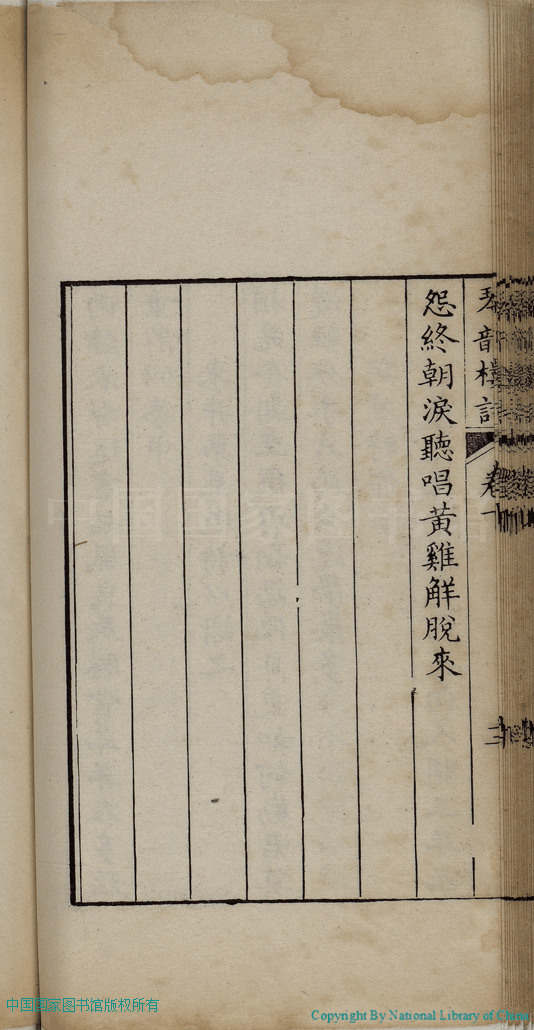 琴音標記 卷一 三
怨終朝淚聽唱黃雞解脫來
中国国家图书馆
中国国家图书馆版权所有
Copyright By National Library of China